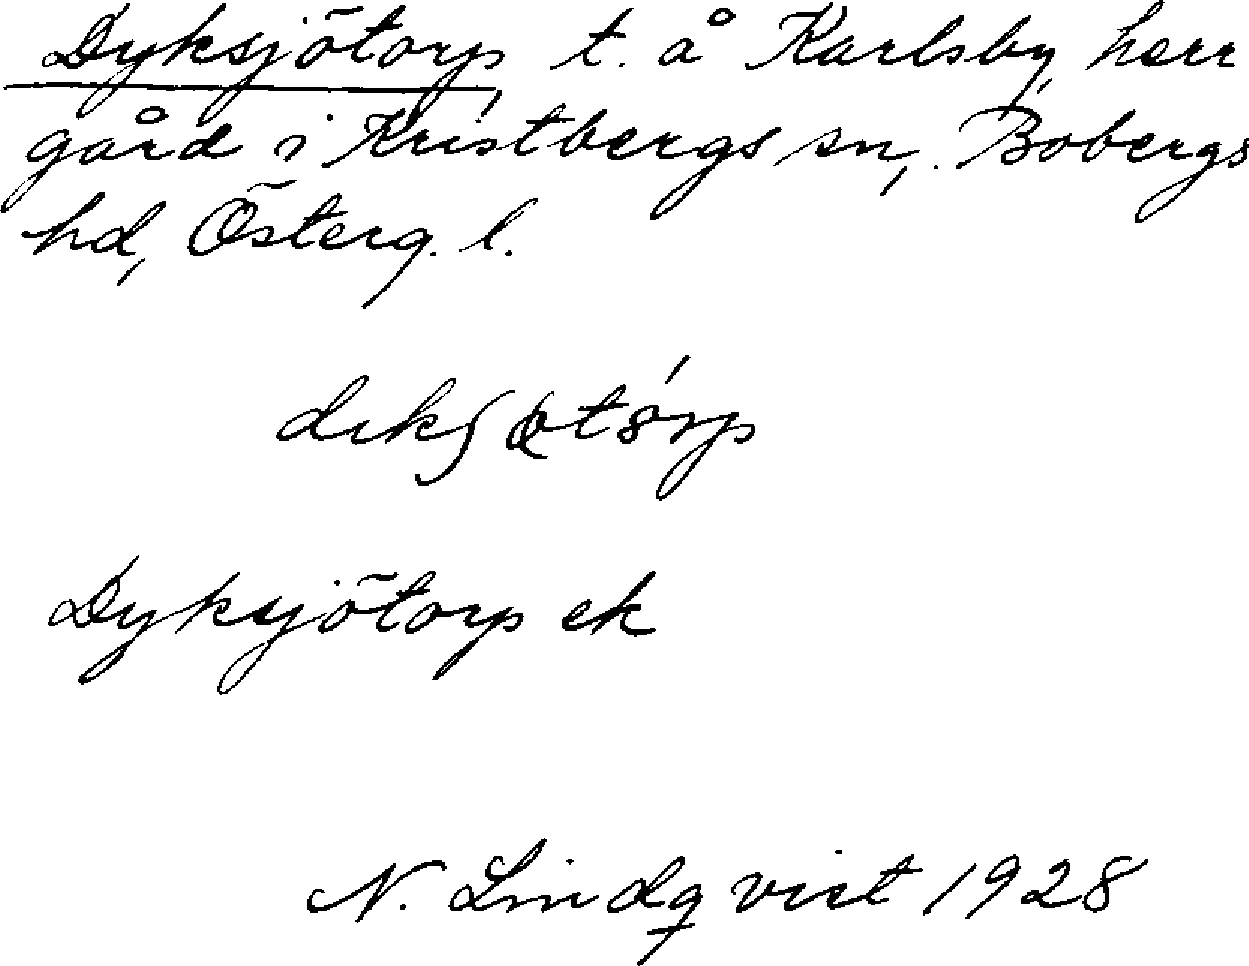 Dyksjötorp, t. å Karlsby, herr
gård i Kristbergs sn, Bobergs
hd, Österg. l.
Dyksjötorp ek
N. Lindqvist 1928